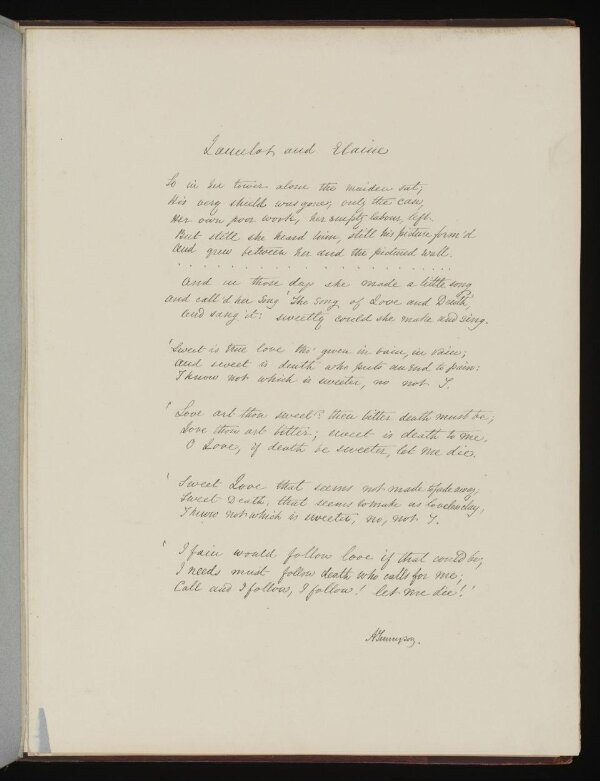 Lancelot and Elaine
So in her tower alone the maiden sat;
His very shield was gone; only the case,
Her own poor work, her empty labour, left.
But still she heard him, still his picture form'd
And grew between her and the pictured wall.
. . . . . . . . . . . . . . . . . .
And in those days she made a little song
And call'd her song 'The Song of Love and Death,'
And sang it: sweetly could she make and sing.
'Sweet is true love tho' given in vain, in vain;
And sweet is death who puts an end to pain:
I know not which is sweeter, no not I.
'Love art thou sweet? then bitter death must be;
Love thou art bitter; sweet is death to me.
O Love, if death be sweeter, let me die.
'Sweet Love that seems not made to fade away;
Sweet Death, that seems to make us loveless clay,
I know not which is sweeter, no, not I.
'I fain would follow love if that could be;
I needs must follow death, who calls for me;
Call and I follow, I follow! let me die!'
A Tennyson.